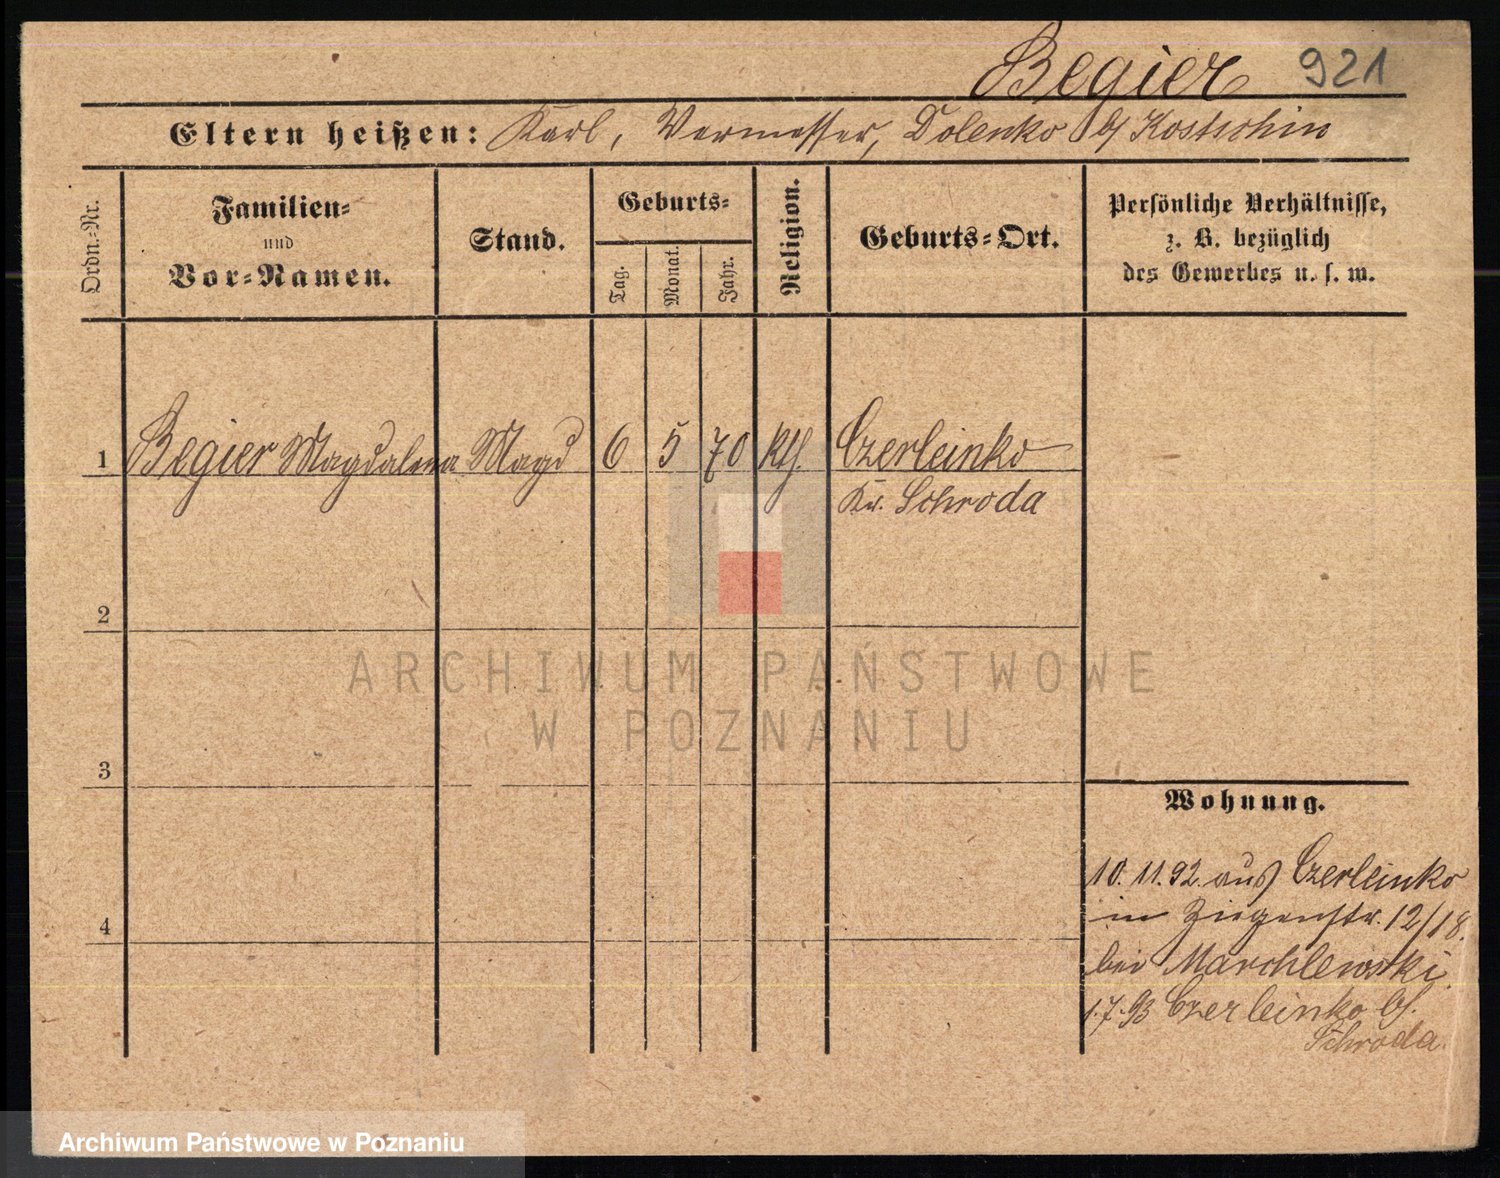 Begier 921
Eltern heißen: Karl, Vermesser, Dolenko b/ Kostschin
Ordn.-Nr.
Familien-
und
Vor-Namen.
Stand.
Geburts-
Tag.
Monat.
Jahr.
Religion.
Geburts-Ort.
Persönliche Verhältnisse,
z. B. bezüglich
des Gewerbes u. s. w.
1 Begier Magdalena Magd 6 5 70 kth. Czerleinko
Kr. Schroda
2
3
4
Wohnung.
10.11.92. aus Czerleinko
in Ziegenstr. 12/18.
bei Marchlewski.
1.7.93 Czerleinko b/.
Schroda.
ARCHIWUM PAŃSTWOWE
W POZNANIU
Archiwum Państwowe w Poznaniu